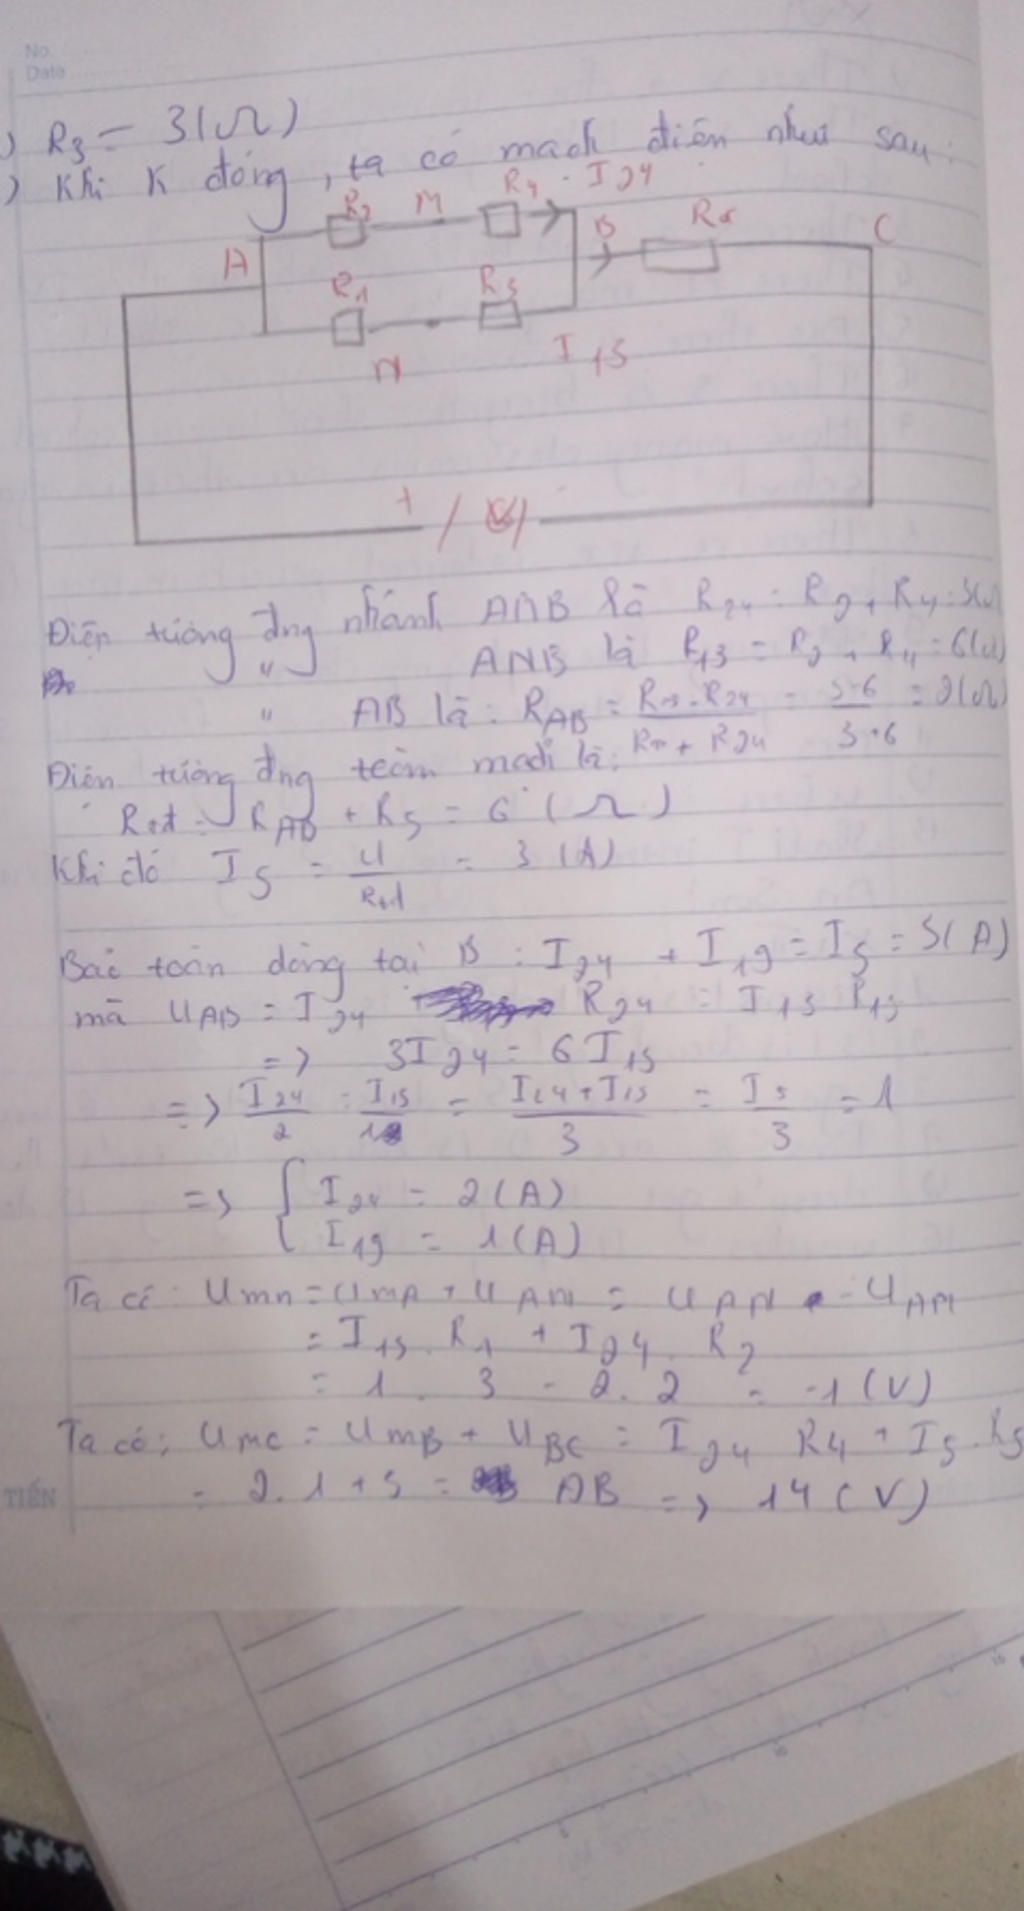 No.
Date
) R3 = 3(Ω)
) Khi K đóng, ta có mạch điện như sau:
R2 M R4 I24
A B R5 C
R1 R3
N I13
+ / /
Điện tương đng nhánh AMB là R24 = R2 + R4 = 3(Ω)
" ANB là R13 = R2 + R4 = 6(Ω)
" AB là: RAB = R13.R24 / R13 + R24 = 3.6 / 3+6 = 2(Ω)
Điện tương đng toàn mạch là:
Rtđ = RAB + R5 = 6 (Ω)
Khi đó I5 = U / Rtđ = 3 (A)
Bảo toàn dòng tại B: I24 + I13 = I5 = 3(A)
mà UAB = I24 R24 = I13 R13
=> 3I24 = 6I13
=> I24 / 2 = I13 / 1 = I24 + I13 / 3 = I5 / 3 = 1
=> { I24 = 2(A)
I13 = 1(A)
Ta có: UMN = UMA + UAN = UAN - UAM
= I13. R1 + I24. R2
= 1. 3 - 2. 2 = -1(V)
Ta có: UMC = UMB + UBC = I24 R4 + I5. R5
= 2. 1 + 3 = AB => 14(V)
TIẾN